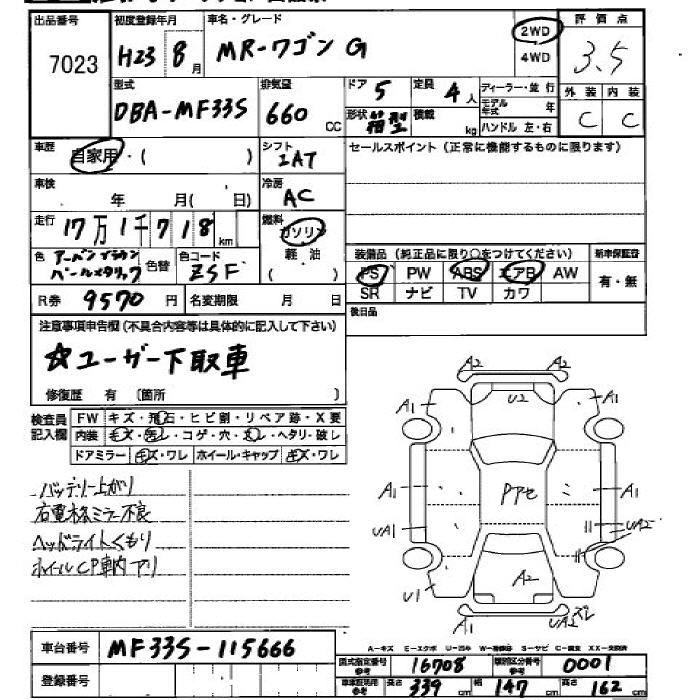 出品番号 初度登録年月 車名・グレード 2WD 評価点
7023 H23 8月 MR-ワゴン G 4WD 3.5
型式 排気量 ドア 5 定員 4人 ディーラー・並行 外装 内装
DBA-MF33S 660 CC 形状 箱型 積載 kg モデル年式 年 C C
ハンドル 左・右
車歴 自家用・( ) シフト IAT セールスポイント(正常に機能するものに限ります)
車検 年 月( 日) 冷房 AC
走行 17万1千718km 燃料 ガソリン
軽油
色 アーバンブラウン 色替 色コード 装備品(純正品に限り○をつけてください) 新車保証書
パールメタリック ZSF ( ) PS PW ABS エアB AW 有・無
R券 9570円 名変期限 月 日 SR ナビ TV カワ
後日品
注意事項申告欄(不具合内容等は具体的に記入して下さい)
☆ユーザー下取車
修復歴 有〔箇所 〕
検査員 FW キズ・飛石・ヒビ割・リペア跡・X要
記入欄 内装 キズ・汚レ・コゲ・穴・スレ・ヘタリ・破レ
ドアミラー キズ・ワレ ホイール・キャップ キズ・ワレ
バッテリー上がり
右電格ミラー不良
ヘッドライトくもり
ホイールCP車内アリ
A2 A2
A1 U2 A1
A1 Pアセ A1
UA1 UA2
A2
U1 UA2 ズレ
車台番号 MF33S-115666
登録番号
A-キズ E-エクボ S-サビ
型式指定番号 参考 16708 類別区分番号 参考 0001
長さ 339 cm 幅 147 cm 高さ 162 cm